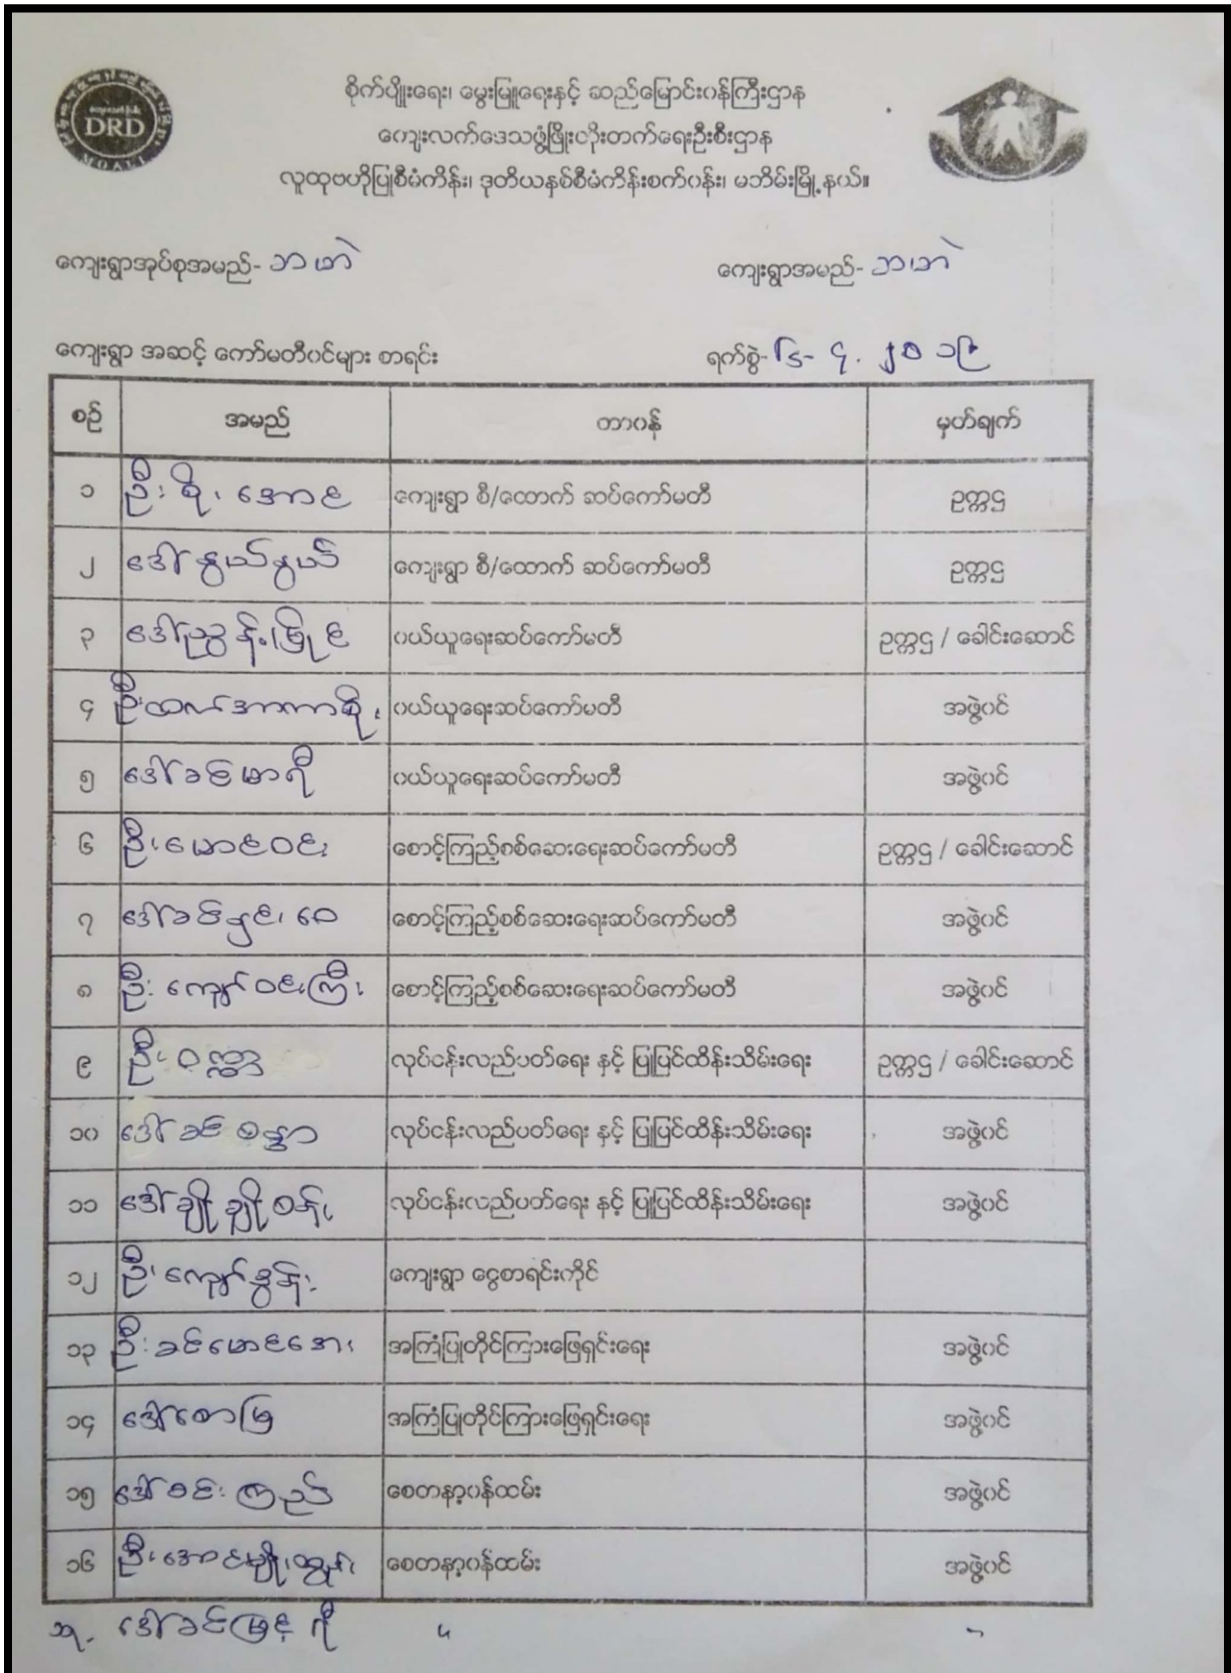 DRD
စိုက်ပျိုးရေး၊ မွေးမြူရေးနှင့် ဆည်မြောင်းဝန်ကြီးဌာန
ကျေးလက်ဒေသဖွံ့ဖြိုးတိုးတက်ရေးဦးစီးဌာန
လူထုဗဟိုပြုစီမံကိန်း၊ ဒုတိယနှစ်စီမံကိန်းစက်ဝန်း၊ မဘိမ်းမြို့နယ်။
ကျေးရွာအုပ်စုအမည်- ဘဟာ ကျေးရွာအမည်- ဘဟာ
ကျေးရွာ အဆင့် ကော်မတီဝင်များ စာရင်း ရက်စွဲ- ၂၀၁၉
စဉ် အမည် တာဝန် မှတ်ချက်
၁ ဦးစိုးအောင် ကျေးရွာ စီ/ထောက် ဆပ်ကော်မတီ ဥက္ကဌ
၂ ဒေါ်နွယ်နွယ် ကျေးရွာ စီ/ထောက် ဆပ်ကော်မတီ ဥက္ကဌ
၃ ဒေါ်ညွန့် ဝယ်ယူရေးဆပ်ကော်မတီ ဥက္ကဌ / ခေါင်းဆောင်
၄ ဦးထက်အာကာစိုး ဝယ်ယူရေးဆပ်ကော်မတီ အဖွဲ့ဝင်
၅ ဒေါ်ခင်မာရီ ဝယ်ယူရေးဆပ်ကော်မတီ အဖွဲ့ဝင်
၆ ဦးမောင်ဝင်း စောင့်ကြည့်စစ်ဆေးရေးဆပ်ကော်မတီ ဥက္ကဌ / ခေါင်းဆောင်
၇ ဒေါ်ခင်နှင်းဝေ စောင့်ကြည့်စစ်ဆေးရေးဆပ်ကော်မတီ အဖွဲ့ဝင်
၈ ဦးကျော်ဝင်းကြီး စောင့်ကြည့်စစ်ဆေးရေးဆပ်ကော်မတီ အဖွဲ့ဝင်
၉ ဦးဝဏ္ဏ လုပ်ငန်းလည်ပတ်ရေး နှင့် ပြုပြင်ထိန်းသိမ်းရေး ဥက္ကဌ / ခေါင်းဆောင်
၁၀ ဒေါ်ခင်စန္ဒာ လုပ်ငန်းလည်ပတ်ရေး နှင့် ပြုပြင်ထိန်းသိမ်းရေး အဖွဲ့ဝင်
၁၁ ဒေါ်ချိုချိုစန်း လုပ်ငန်းလည်ပတ်ရေး နှင့် ပြုပြင်ထိန်းသိမ်းရေး အဖွဲ့ဝင်
၁၂ ဦးကျော်ထွန်း ကျေးရွာ ငွေစာရင်းကိုင်
၁၃ ဦးခင်မောင်အေး အကြံပြုတိုင်ကြားဖြေရှင်းရေး အဖွဲ့ဝင်
၁၄ ဒေါ်စောမြ အကြံပြုတိုင်ကြားဖြေရှင်းရေး အဖွဲ့ဝင်
၁၅ ဒေါ်ဝင်းကြည် စေတနာ့ဝန်ထမ်း အဖွဲ့ဝင်
၁၆ ဦးအောင်မျိုးထွန်း စေတနာ့ဝန်ထမ်း အဖွဲ့ဝင်
၁၇- ဒေါ်ခင်မြင့်ရီ " "